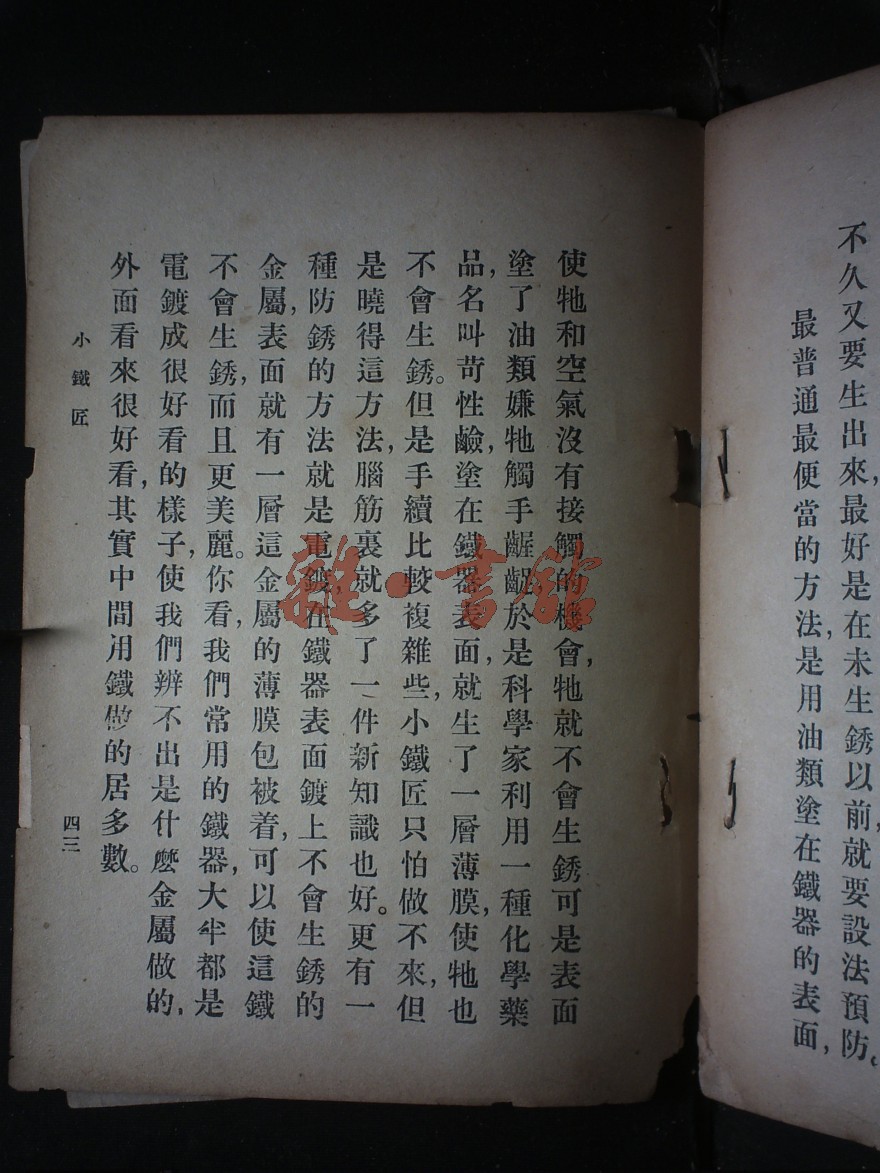 不久又要生出來,最好是在未生銹以前,就要設法預防。
最普通最便當的方法,是用油類塗在鐵器的表面,
使牠和空氣沒有接觸的機會,牠就不會生銹可是表面
塗了油類嫌牠觸手齷齪,於是科學家利用一種化學藥
品,名叫苛性鹼,塗在鐵器表面,就生了一層薄膜,使牠也
不會生銹。但是手續比較複雜些,小鐵匠只怕做不來,但
是曉得這方法,腦筋裏就多了一件新知識也好。更有一
種防銹的方法就是電鍍,在鐵器表面鍍上不會生銹的
金屬,表面就有一層這金屬的薄膜包被着,可以使這鐵
不會生銹,而且更美麗。你看,我們常用的鐵器,大半都是
電鍍成很好看的樣子,使我們辨不出是什麼金屬做的,
外面看來很好看,其實中間用鐵做的居多數。
小鐵匠
四三
雜·書館